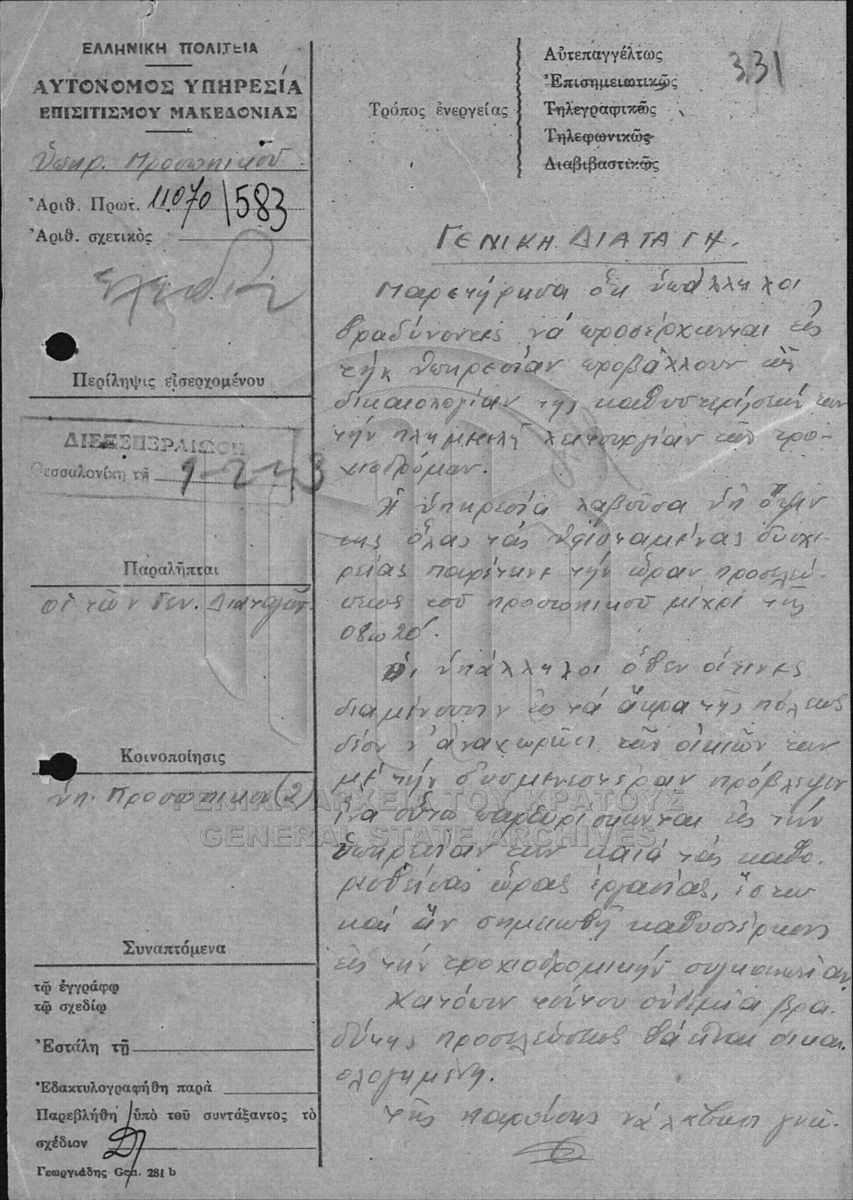 ΕΛΛΗΝΙΚΗ ΠΟΛΙΤΕΙΑ
ΑΥΤΟΝΟΜΟΣ ΥΠΗΡΕΣΙΑ
ΕΠΙΣΙΤΙΣΜΟΥ ΜΑΚΕΔΟΝΙΑΣ
Ὑπηρ. Προσωπικοῦ
Ἀριθ. Πρωτ. 11.070/583
Ἀριθ. σχετικὸς
Περίληψις εἰσερχομένου
ΔΙΕΚΠΕΡΑΙΩΣΗ
Θεσσαλονίκη τῇ 9-2-43
Παραλῆπται
οἱ τῶν Γεν. Διαταγῶν
Κοινοποίησις
Ὑπ. Προσωπικοῦ (2)
Συναπτόμενα
τῷ ἐγγράφῳ
τῷ σχεδίῳ
Ἐστάλη τῇ
Ἐδακτυλογραφήθη παρὰ
Παρεβλήθη ὑπὸ τοῦ συντάξαντος τὸ
σχέδιον
Γεωργιάδης Gen. 281 b
Τρόπος ἐνεργείας
Αὐτεπαγγέλτως
Ἐπισημειωτικῶς
Τηλεγραφικῶς
Τηλεφωνικῶς
Διαβιβαστικῶς
331
ΓΕΝΙΚΗ ΔΙΑΤΑΓΗ.
Παρετήρησα ὅτι ὑπάλληλοι
βραδύνοντες νὰ προσέρχωνται εἰς
τὴν Ὑπηρεσίαν προβάλλουν ὡς
δικαιολογίαν τῆς καθυστερήσεώς των
τὴν πλημμελῆ λειτουργίαν τῶν τρο-
χιοδρόμων.
Ἡ Ὑπηρεσία λαβοῦσα ὑπ' ὄψιν
της ὅλας τὰς ὑφισταμένας δυσχε-
ρείας παρέτεινε τὴν ὥραν προσελεύ-
σεως τοῦ προσωπικοῦ μέχρι τῆς
08ω 20'.
Οἱ ὑπάλληλοι ὅθεν οἵτινες
διαμένουσιν εἰς τὰ ἄκρα τῆς πόλεως
δέον ν' ἀναχωρῶσι τῶν οἰκιῶν των
μὲ τὴν δυσμενεστέραν πρόβλεψιν
ἵνα οὕτω παρευρίσκωνται εἰς τὴν
ὑπηρεσίαν των κατὰ τὰς καθο-
ρισθείσας ὥρας ἐργασίας, ἔστω
καὶ ἂν σημειωθῇ καθυστέρησις
εἰς τὴν τροχιοδρομικὴν συγκοινωνίαν.
Κατόπιν τούτου οὐδεμία βρα-
δύτης προσελεύσεως θὰ εἶναι δικαι-
ολογημένη.
Τῆς παρούσης νὰ λάβωσι γνῶ-
ΓΕΝΙΚΑ ΑΡΧΕΙΑ ΤΟΥ ΚΡΑΤΟΥΣ
GENERAL STATE ARCHIVES